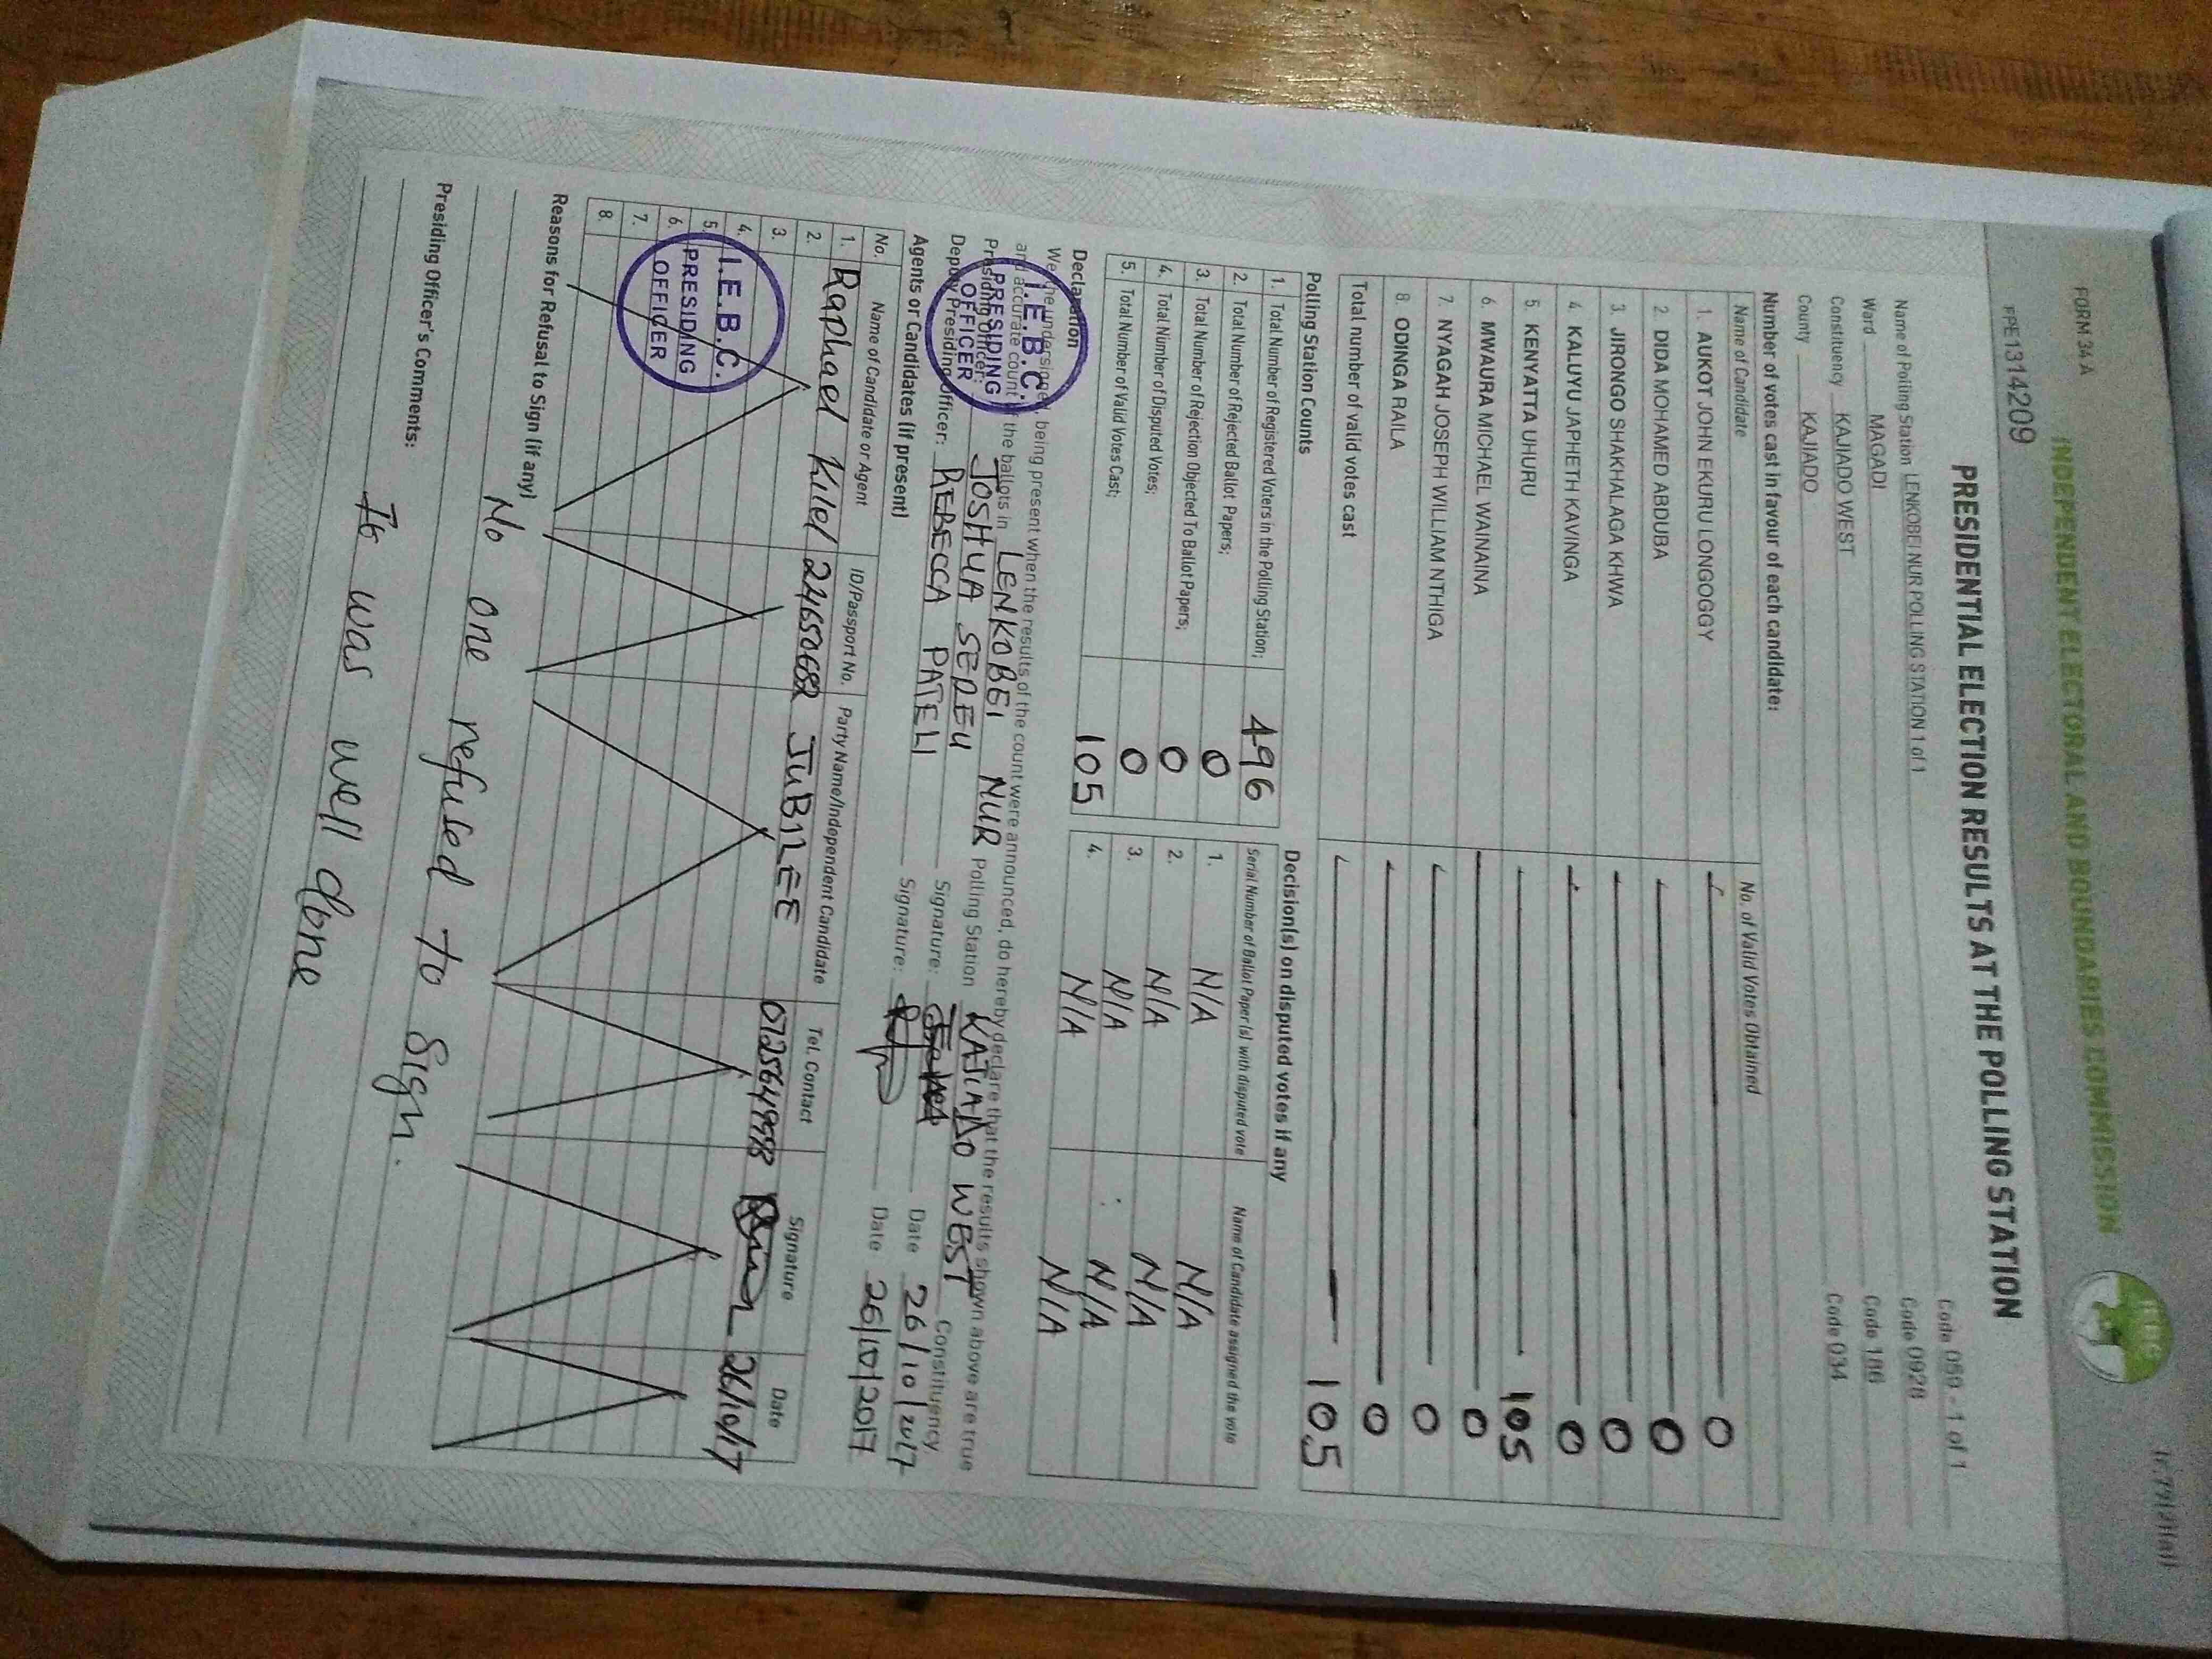 FORM 34A
INDEPENDENT ELECTORAL AND BOUNDARIES COMMISSION
FPE1314209
PRESIDENTIAL ELECTION RESULTS AT THE POLLING STATION
Name of Polling Station LENKOBEI NUR POLLING STATION 1 of 1 Code 050 - 1 of 1
Ward MAGADI Code 0928
Constituency KAJIADO WEST Code 186
County KAJIADO Code 034
Number of votes cast in favour of each candidate:
Name of Candidate No. of Valid Votes Obtained
1. AUKOT JOHN EKURU LONGOGGY 0
2. DIDA MOHAMED ABDUBA 0
3. JIRONGO SHAKHALAGA KHWA 0
4. KALUYU JAPHETH KAVINGA 0
5. KENYATTA UHURU 105
6. MWAURA MICHAEL WAINAINA 0
7. NYAGAH JOSEPH WILLIAM NTHIGA 0
8. ODINGA RAILA 0
Total number of valid votes cast 105
Polling Station Counts
1. Total Number of Registered Voters in the Polling Station; 496
2. Total Number of Rejected Ballot Papers; 0
3. Total Number of Rejection Objected To Ballot Papers; 0
4. Total Number of Disputed Votes; 0
5. Total Number of Valid Votes Cast; 105
Decision(s) on disputed votes if any
Serial Number of Ballot Paper(s) with disputed vote Name of Candidate assigned the vote
1. N/A N/A
2. N/A N/A
3. N/A N/A
4. N/A N/A
Declaration
We the undersigned being present when the results of the count were announced, do hereby declare that the results shown above are true
and accurate count of the ballots in LENKOBEI NUR Polling Station KAJIADO WEST Constituency
Presiding Officer: JOSHUA SEDEU Signature: Date 26/10/2017
Deputy Presiding Officer: REBECCA PATELI Signature: Date 26/10/2017
I.E.B.C.
PRESIDING
OFFICER
Agents or Candidates (if present)
No. Name of Candidate or Agent ID/Passport No. Party Name/Independent Candidate Tel. Contact Signature Date
1. Raphael Kilel 224650682 JUBILEE 0725649998 26/10/17
2.
3.
4.
5.
6.
7.
8.
I.E.B.C.
PRESIDING
OFFICER
Reasons for Refusal to Sign (if any)
No one refused to Sign.
Presiding Officer's Comments:
It was well done